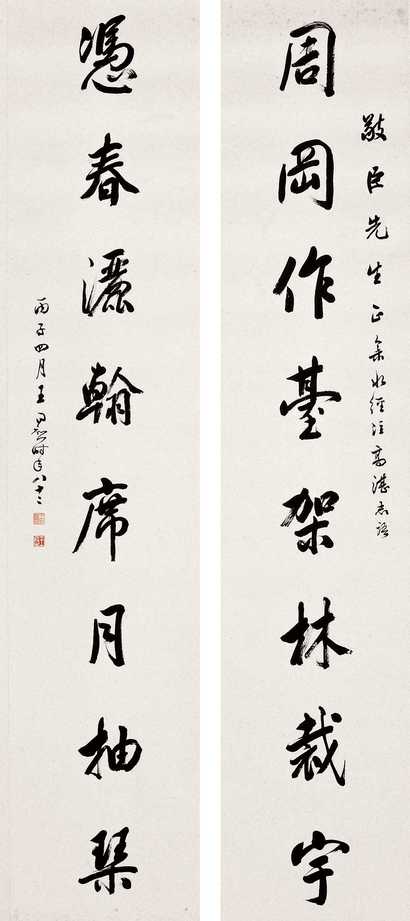 敬臣先生正 集水經注高湛志語
周岡作臺架林裁宇
憑春灑翰席月抽琴
丙子四月王同愈時年八十二